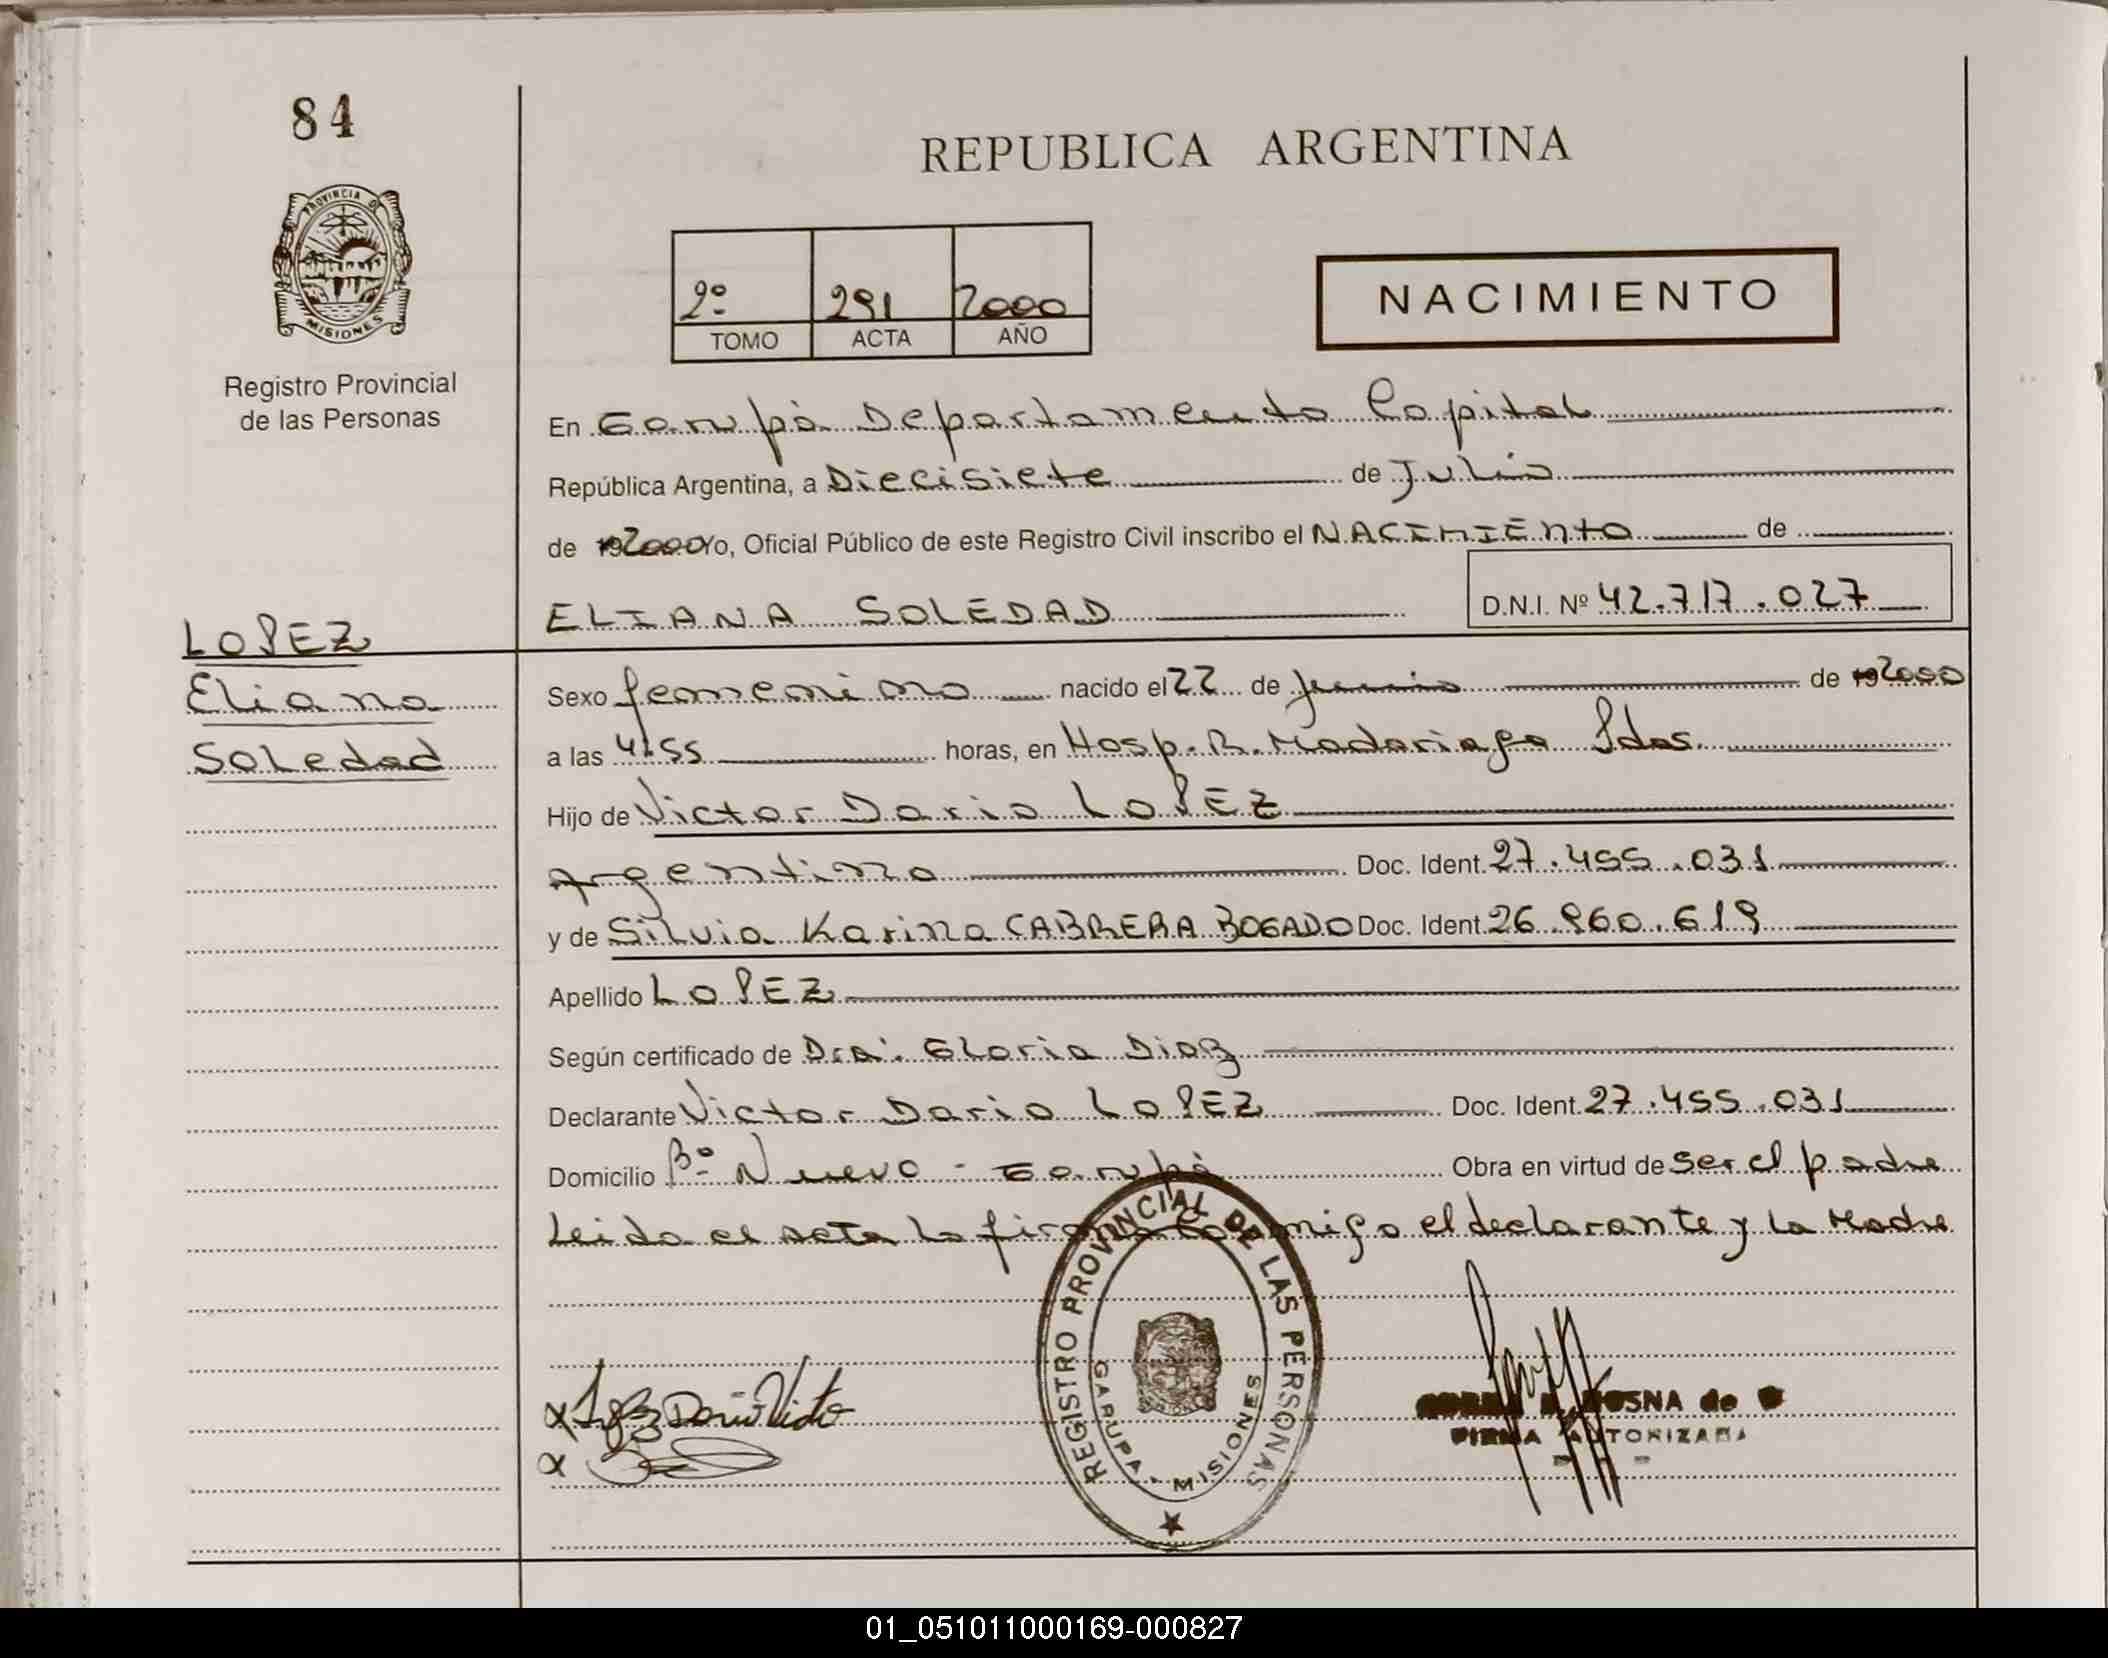 84
REPUBLICA ARGENTINA
PROVINCIA D
MISIONES
Registro Provincial
de las Personas
2º 291 2000
TOMO ACTA AÑO
NACIMIENTO
En Garupà Departamento Capital
República Argentina, a Diecisiete de Julio
de 192000 Yo, Oficial Público de este Registro Civil inscribo el NACIMIENTO de
ELIANA SOLEDAD D.N.I. Nº 42.717.027
LOPEZ
Eliana
Soledad
Sexo femenino nacido el 22 de Junio de 192000
a las 4:55 horas, en Hosp. R. Madariaga Pdas.
Hijo de Victor Dario LOPEZ
Argentino Doc. Ident. 27.455.031
y de Silvia Karina CABRERA BOGADO Doc. Ident. 26.960.619
Apellido LOPEZ
Según certificado de Dra. Gloria Diaz
Declarante Victor Dario LOPEZ Doc. Ident. 27.455.031
Domicilio Bº Nuevo - Garupà Obra en virtud de ser el padre
Leida el acta la firma conmigo el declarante y la Madre
REGISTRO PROVINCIAL DE LAS PERSONAS
GARUPA - MISIONES
Lopez Dario Victor
OSNA de
FIRMA AUTORIZADA
01_051011000169-000827